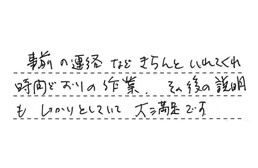 事前の連絡などきちんといれてくれ
時間どおりの作業、その後の説明
もしっかりとしていて大満足です